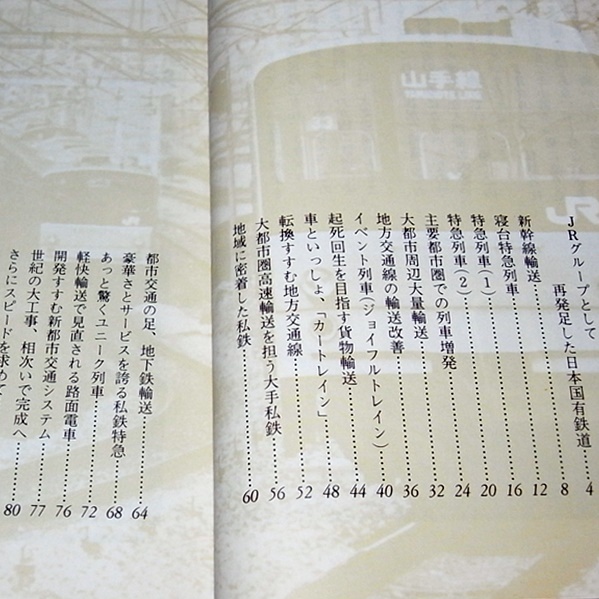 山手線
YAMANOTE LINE
JR
JRグループとして
再発足した日本国有鉄道……4
新幹線輸送……8
寝台特急列車……12
特急列車(1)……16
特急列車(2)……20
主要都市圏での列車増発……24
大都市周辺大量輸送……32
地方交通線の輸送改善……36
イベント列車(ジョイフルトレイン)……40
起死回生を目指す貨物輸送……44
車といっしょ、「カートレイン」……48
転換すすむ地方交通線……52
大都市圏高速輸送を担う大手私鉄……56
地域に密着した私鉄……60
都市交通の足、地下鉄輸送……64
豪華さとサービスを誇る私鉄特急……68
あっと驚くユニーク列車……72
軽快輸送で見直される路面電車……76
開発すすむ新都市交通システム……77
世紀の大工事、相次いで完成へ……80
さらにスピードを求めて